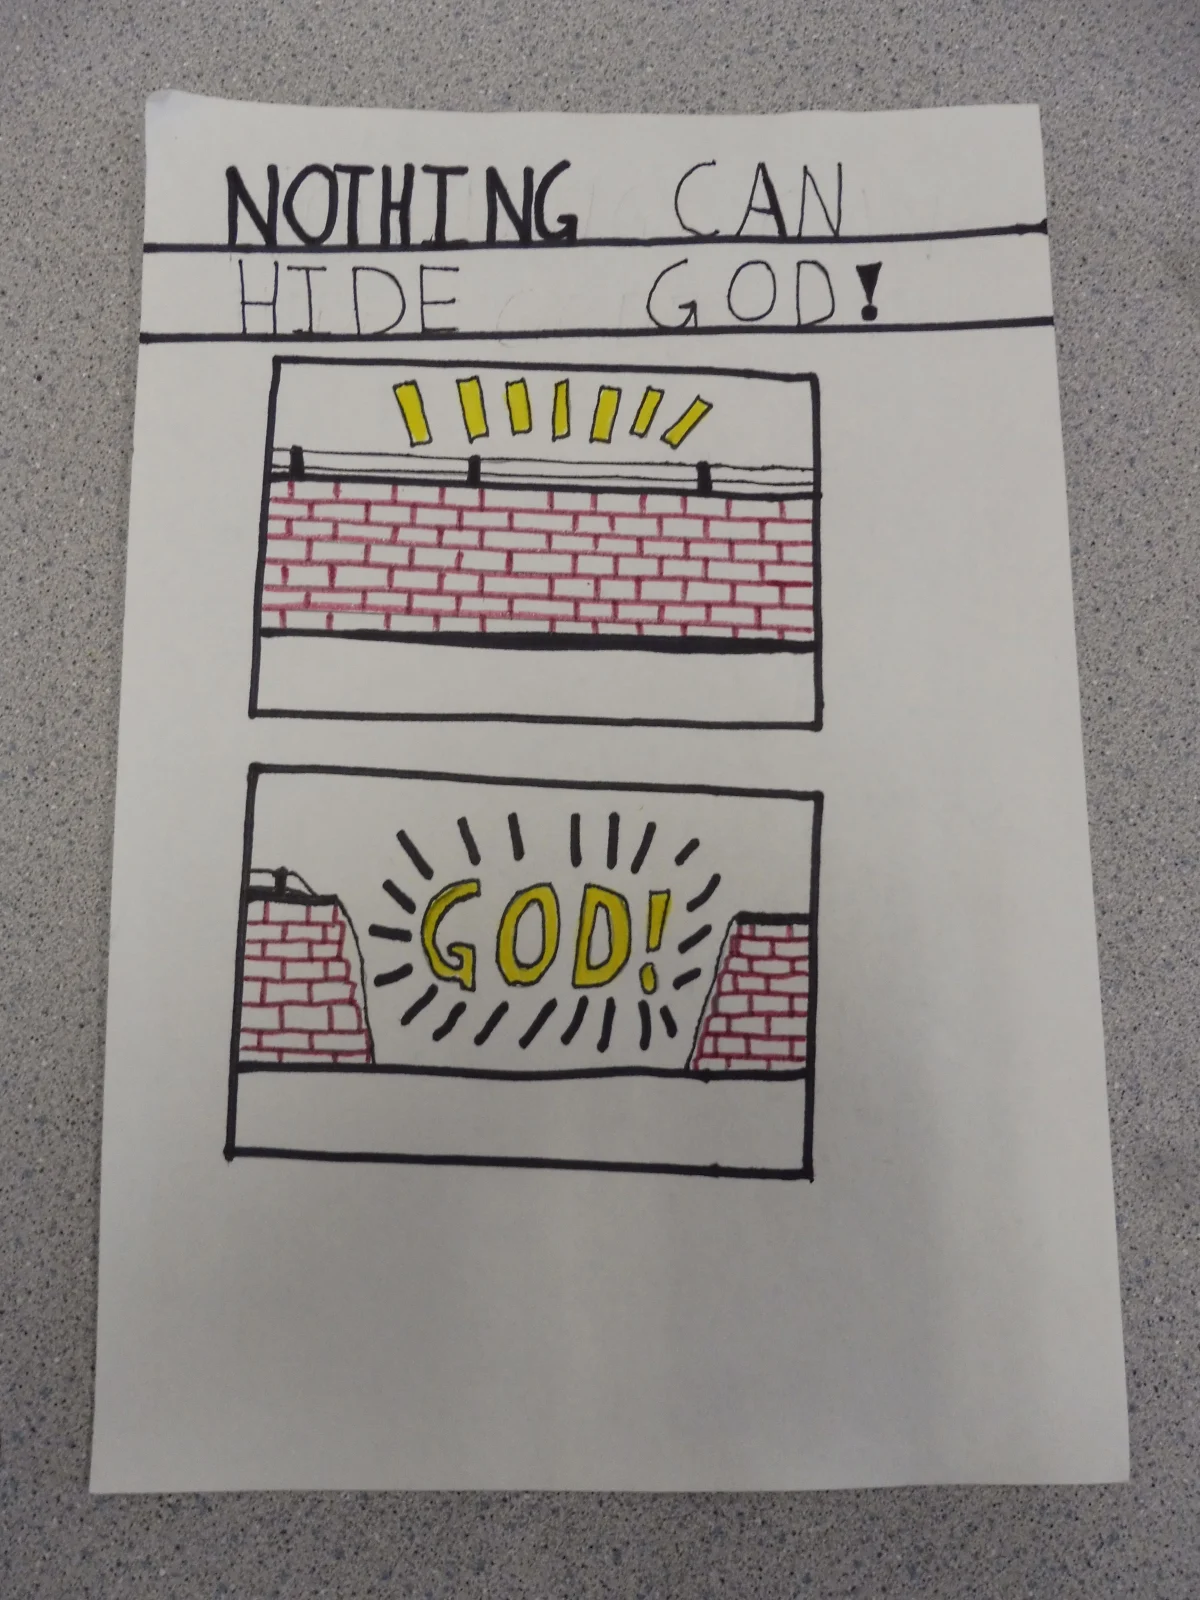 NOTHING CAN
HIDE GOD!
GOD!